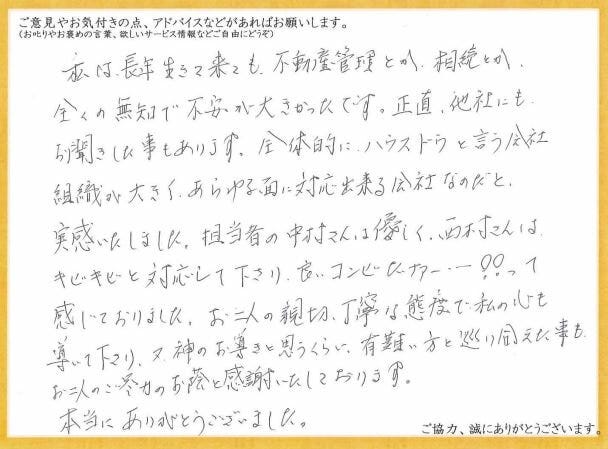 ご意見やお気付きの点、アドバイスなどがあればお願いします。
(お叱りやお褒めの言葉、欲しいサービス情報などご自由にどうぞ)
私は、長年生きて来ても、不動産管理とか、相続とか、
全くの無知で不安が大きかったです。正直、他社にも
お聞きした事もあります、全体的に、ハウスドゥと言う会社
組織が大きく、あらゆる面に対応出来る会社なのだと、
実感いたしました。担当者の中村さんは優しく、西村さんは
キビキビと対応して下さり、良いコンビだナァー…!!って
感じておりました。お二人の親切、丁寧な態度で私の心も
導いて下さり、又、神のお導きと思うくらい、有難い方と巡り会えた事も、
お二人のご尽力のお蔭と感謝いたしております。
本当にありがとうございました。
ご協力、誠にありがとうございます。